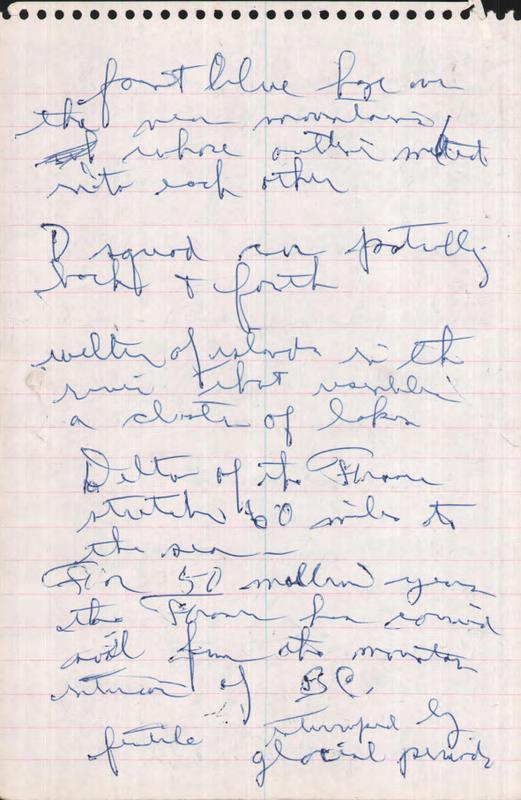 faint blue haze over
the near mountains,
whose outline melted
into each other
squad car fretfully
back & forth
welter of islands in the
river that resemble
a cluster of lakes
Delta of the Fraser
stretches 60 miles to
the sea —
For 50 million years
the Fraser has carried
silt from the mountain
interior of BC.
fertile interrupted by
glacial periods